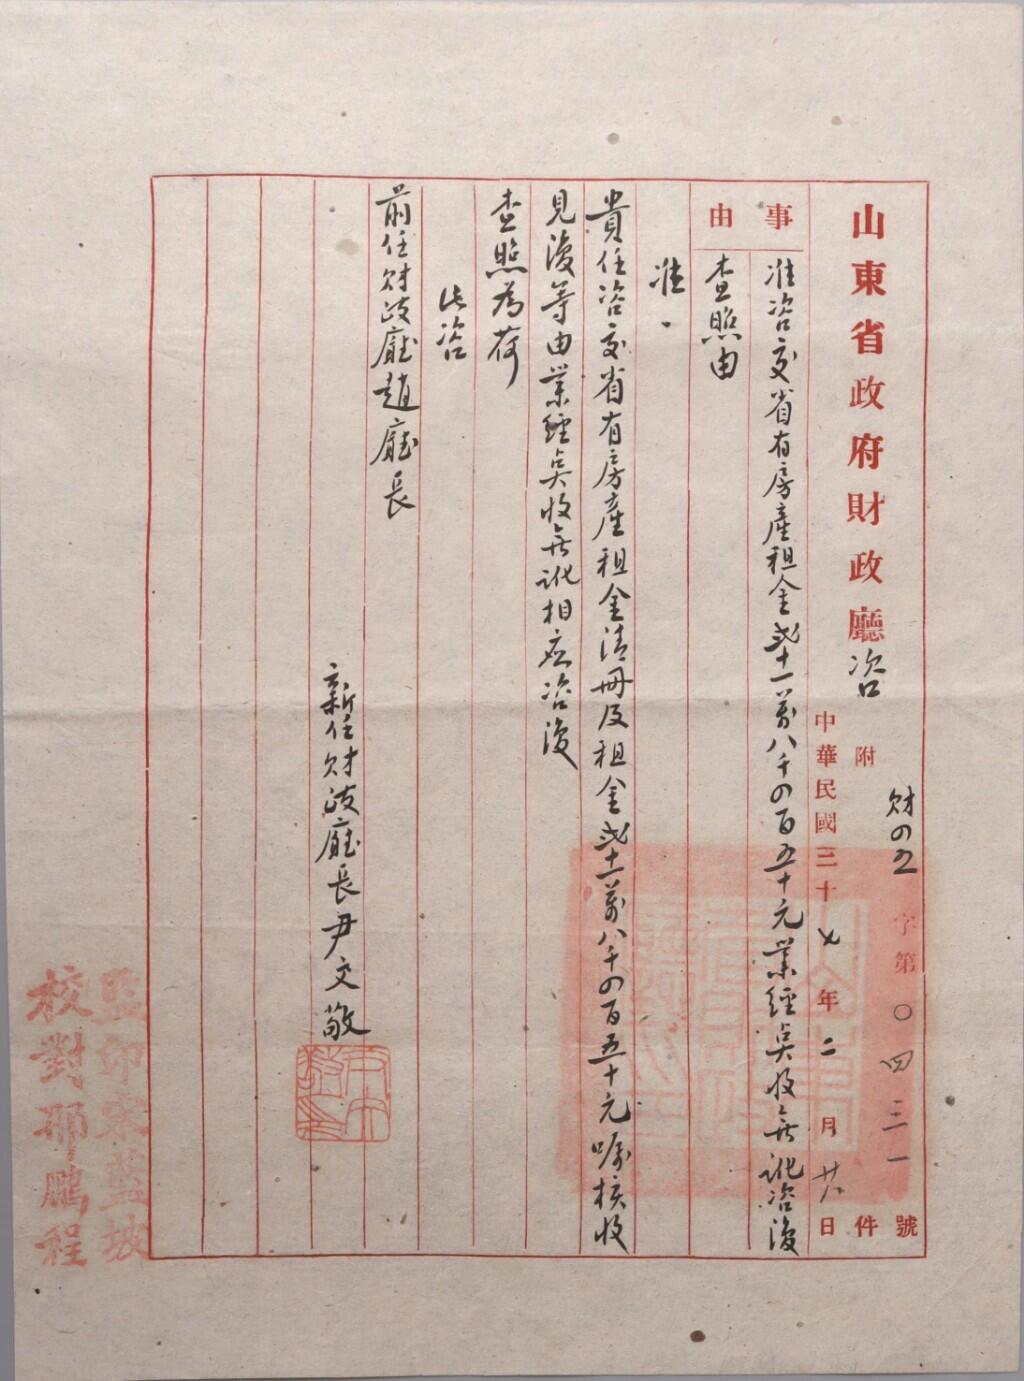 山東省政府財政廳咨
財四五字第〇四三一號
附件
中華民國三十七年二月廿日
事由
准咨交省有房產租金弍十一萬八千四百五十元業經點收無訛咨復
查照由
准
貴任咨交省有房產租金清冊及租金弍十一萬八千四百五十元囑核收
見復等由業經點收無訛相應咨復
查照為荷
此咨
前任財政廳趙廳長
新任財政廳長尹文敬
監印宋藍坡
校對邵鵬程